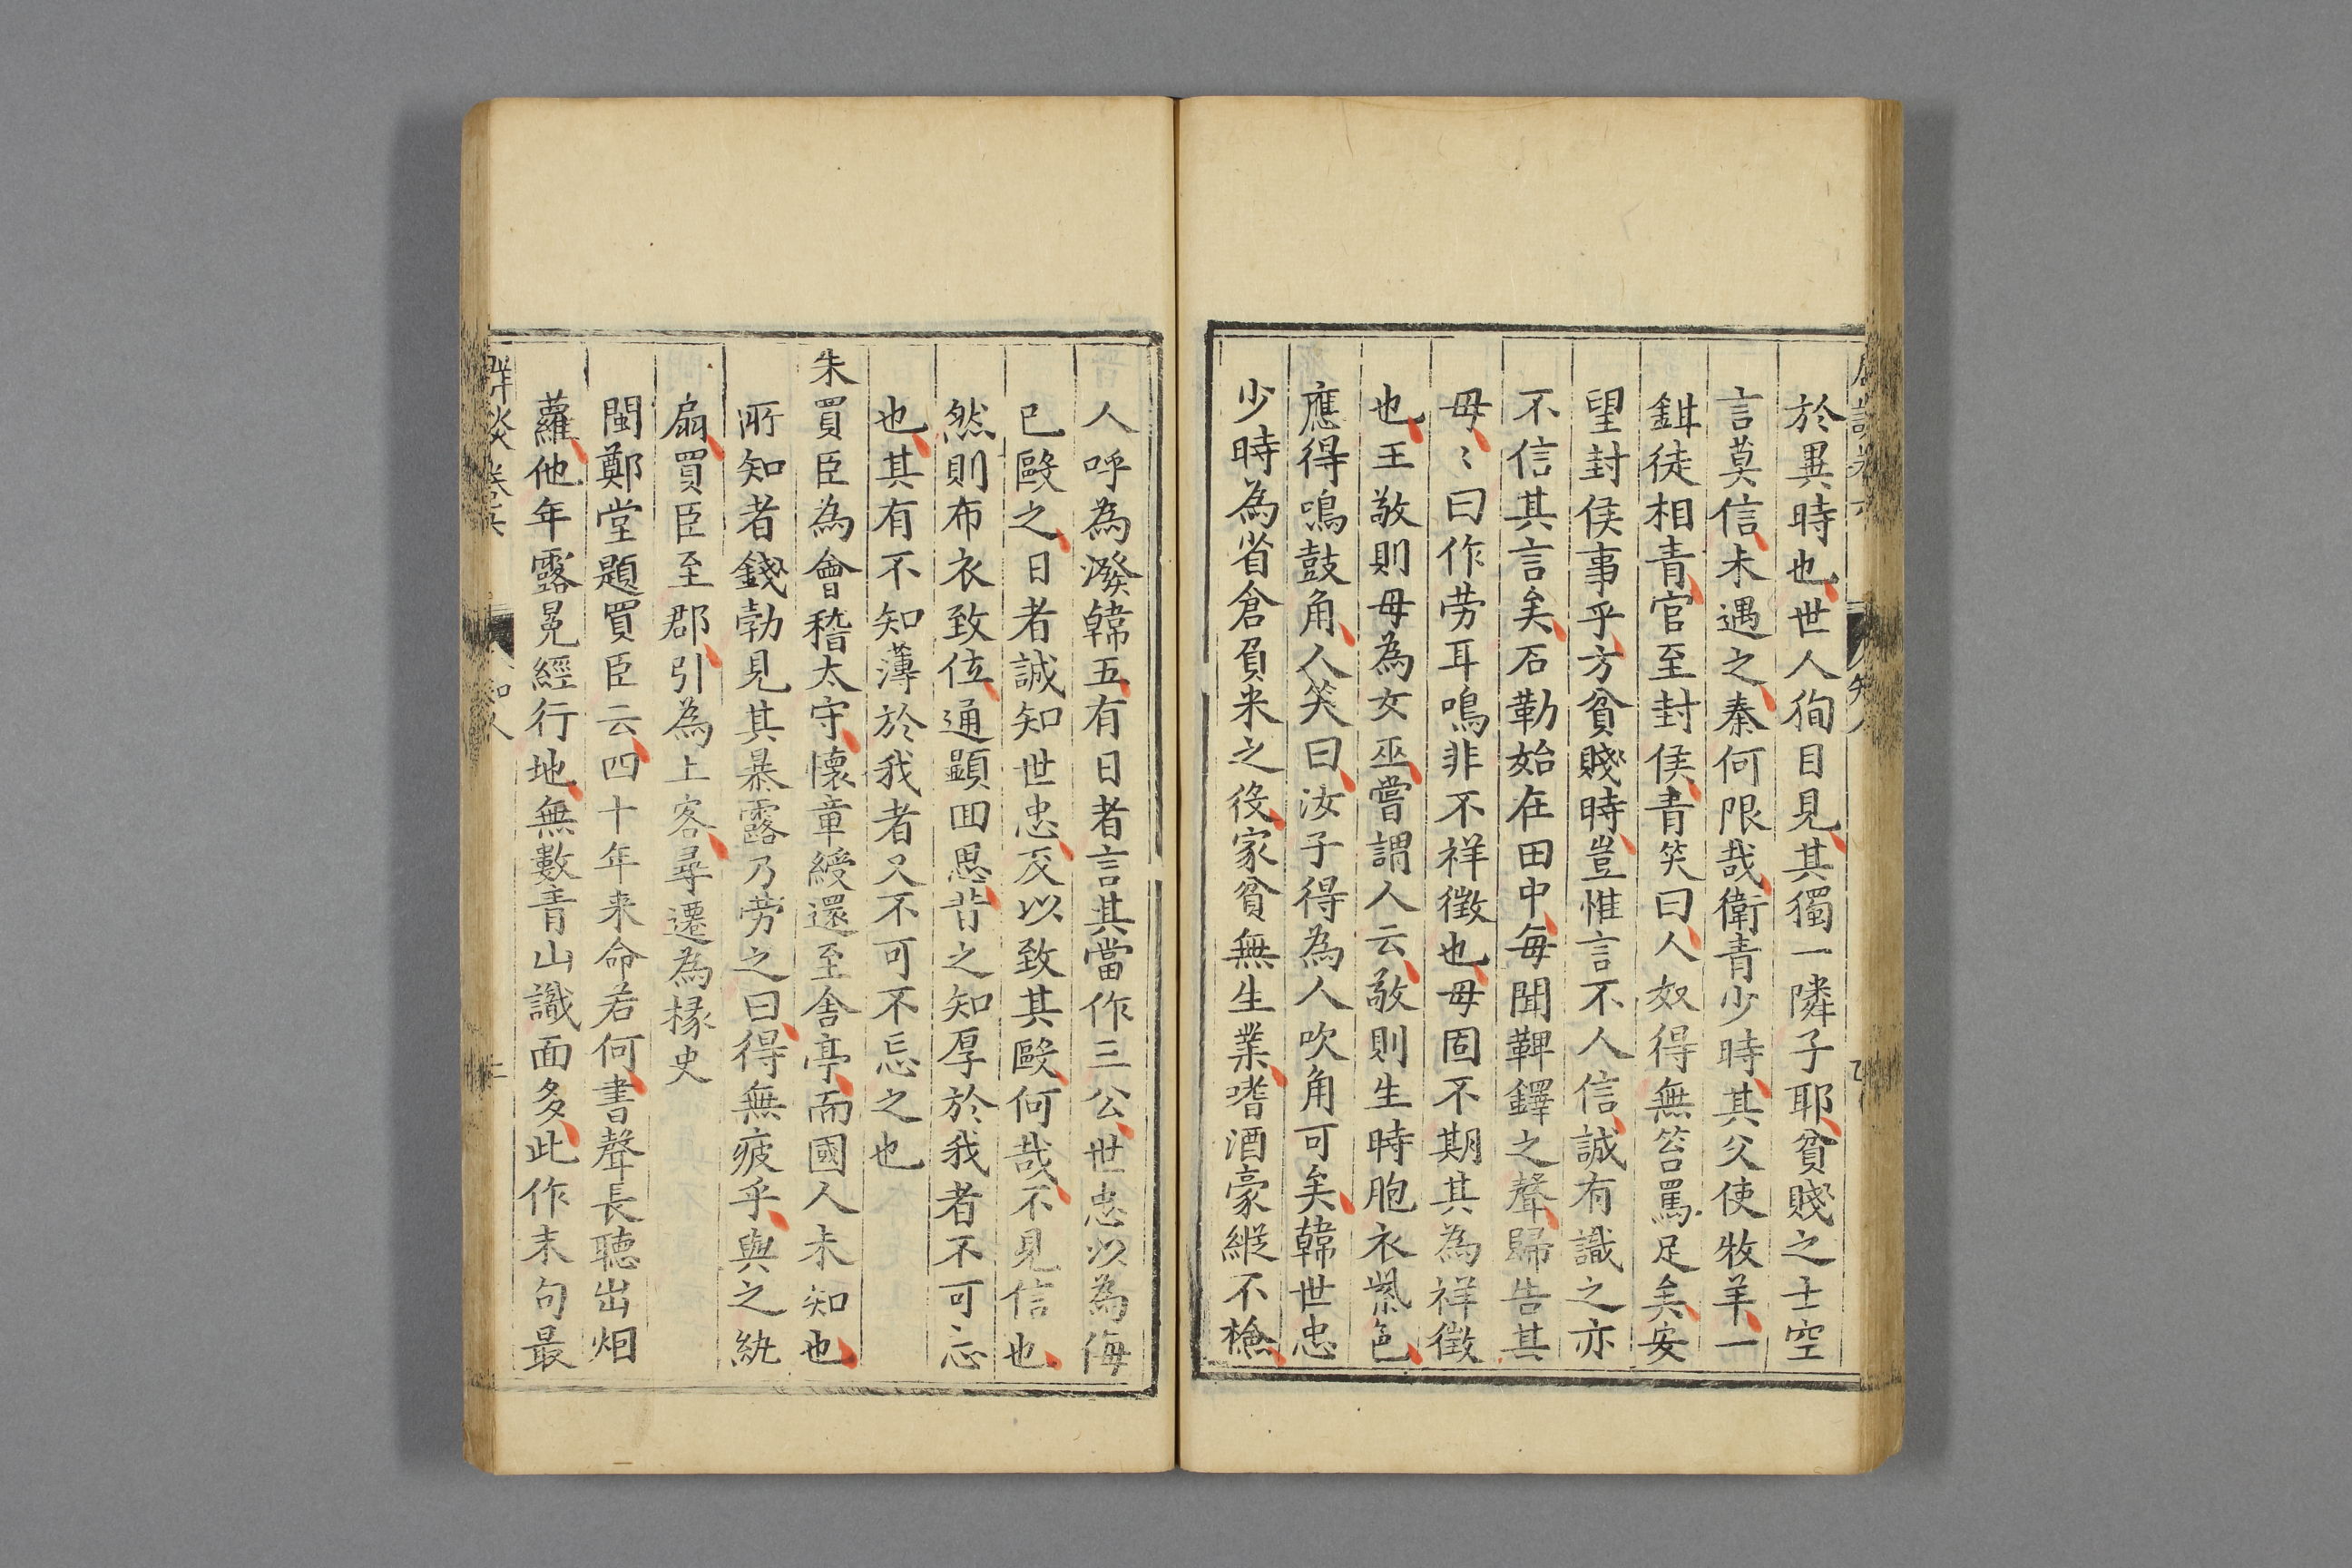 於異時也世人徇目見其獨一隣子耶貧賤之士空
言莫信未遇之秦何限哉衛青少時其父使牧羊一
鉗徒相青官至封侯青笑曰人奴得無笞罵足矣安
望封侯事乎方貧賤時豈惟言不人信誠有識之亦
不信其言矣石勒始在田中每聞鞞鐸之聲歸告其
母〻曰作劳耳鳴非不祥徵也母固不期其為祥徵
也王敬則母為女巫嘗謂人云敬則生時胞衣紫色
應得鳴鼓角人笑曰汝子得為人吹角可矣韓世忠
少時為省倉負米之役家貧無生業嗜酒豪縱不檢
人呼為潑韓五有日者言其當作三公世忠以為侮
已毆之日者誠知世忠反以致其毆何哉不見信也
然則布衣致位通顯囬思昔之知厚於我者不可忘
也其有不知薄於我者又不可不忘之也
朱買臣為會稽太守懷章綬還至舍亭而國人未知也
所知者錢勃見其暴露乃劳之曰得無疲乎與之紈
扇買臣至郡引為上客尋遷為掾史
閩鄭堂題買臣云四十年来命若何書聲長聴出烟
蘿他年露冕經行地無數青山識面多此作末句最
群談 卷六
知人